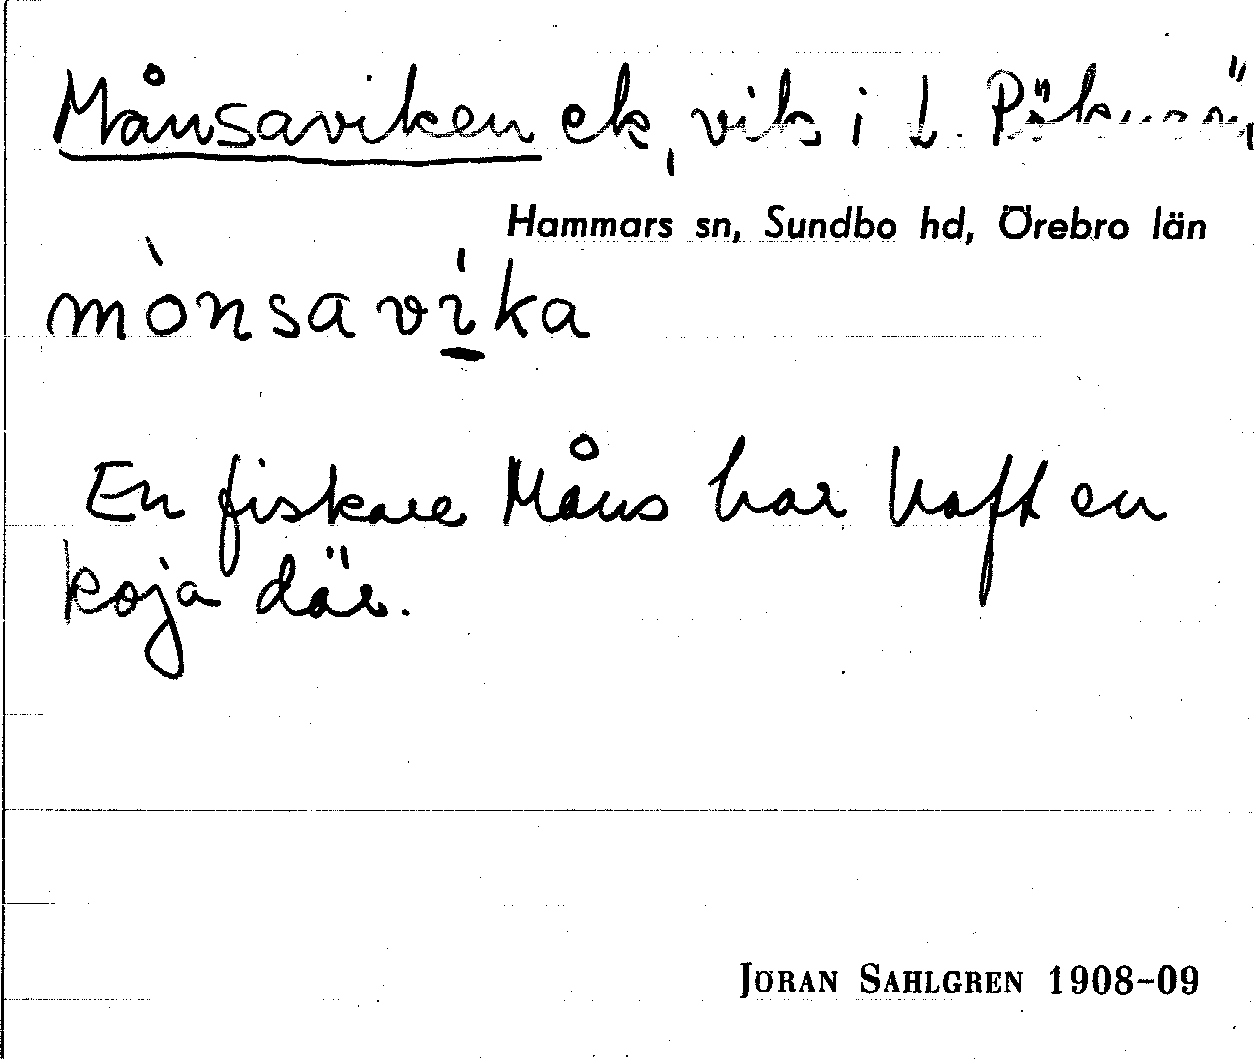 Månsaviken ek, vik i L.
Hammars sn, Sundbo hd, Örebro län
mònsavika
En fiskare Måns har haft en
koja där.
JÖRAN SAHLGREN 1908–09